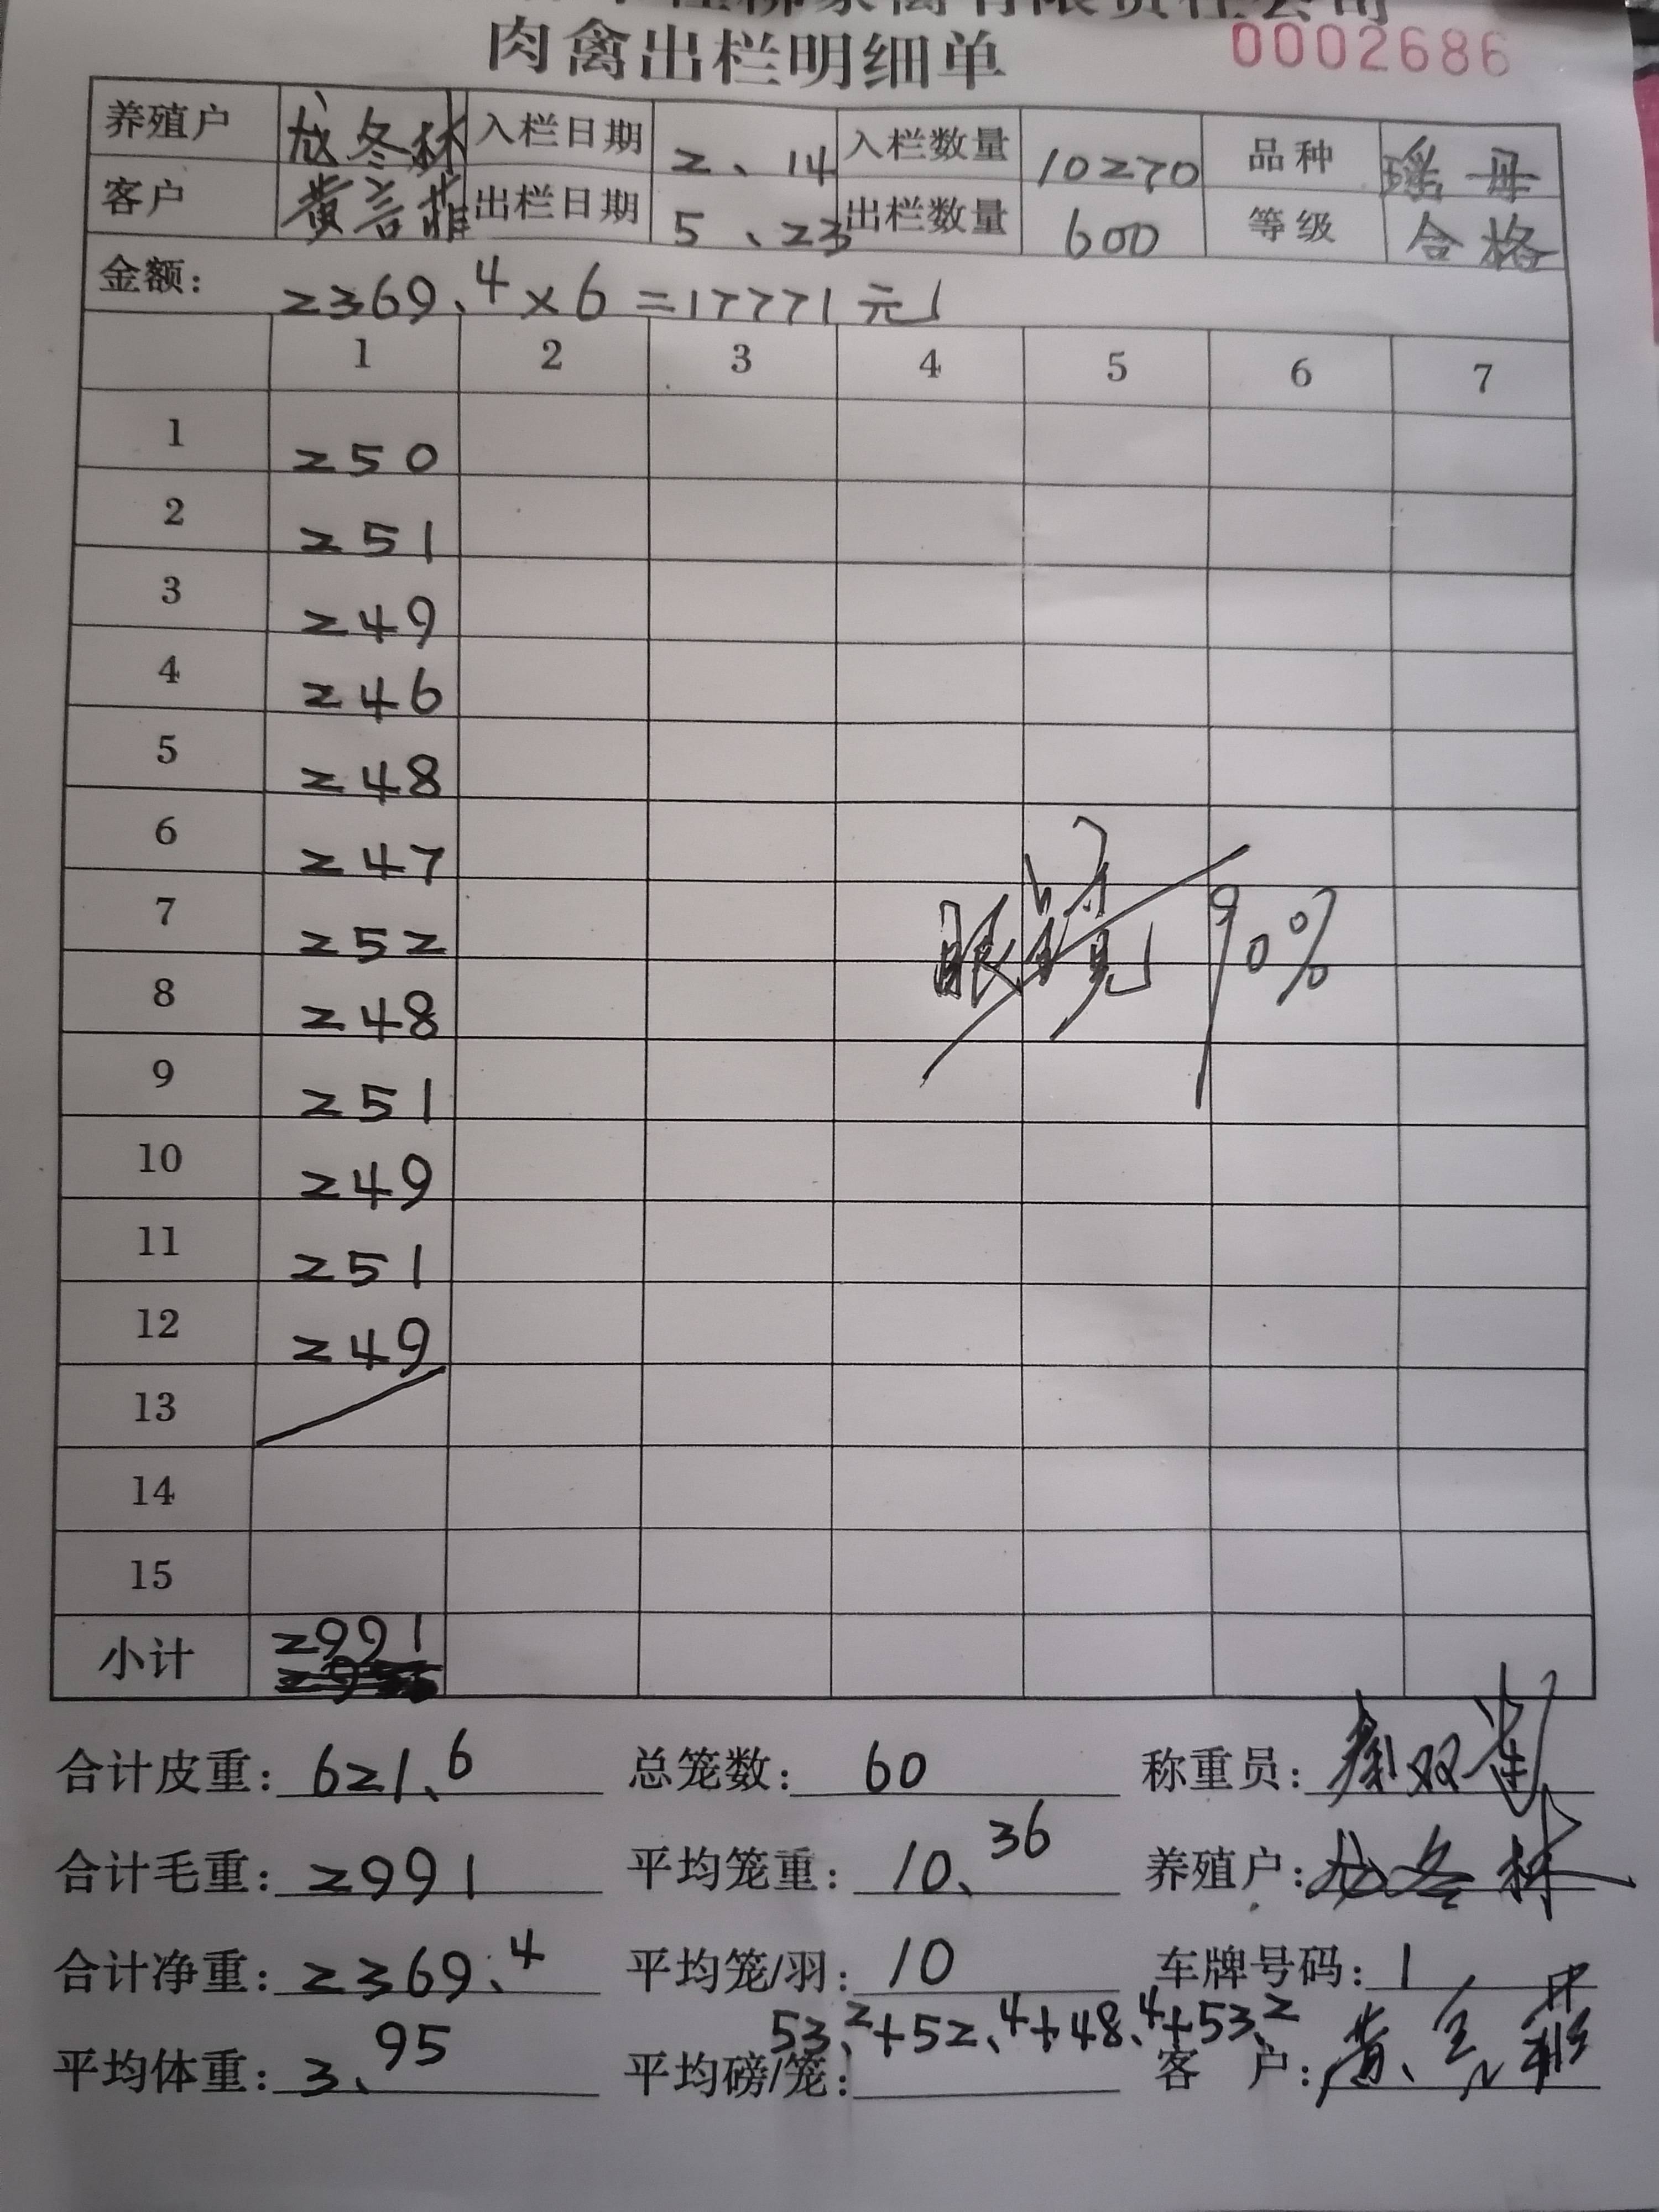 家禽有限责任公司
肉禽出栏明细单 0002686
养殖户 龙冬林 入栏日期 2、14 入栏数量 10270 品种 瑶母
客户 黄言菲 出栏日期 5、23 出栏数量 600 等级 合格
金额: 2369.4×6=17771元
1 2 3 4 5 6 7
1 250
2 251
3 249
4 246
5 248
6 247
7 252
眼镜 90%
8 248
9 251
10 249
11 251
12 249
13
14
15
小计 2991
合计皮重: 621.6 总笼数: 60 称重员:
合计毛重: 2991 平均笼重: 10.36 养殖户: 龙冬林
合计净重: 2369.4 平均笼/羽: 10 车牌号码: 1
53.2+52.4+48.4+53.2
平均体重: 3.95 平均磅/笼: 客户: